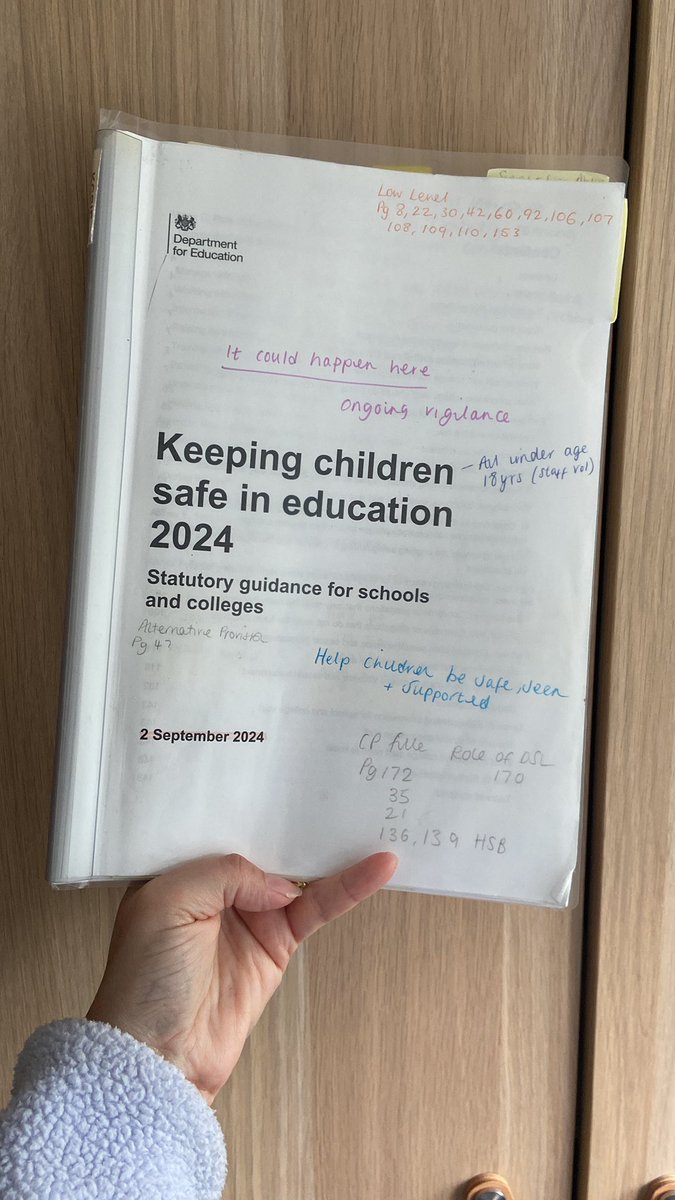 Low Level
Pg 8, 22, 30, 42, 60, 92, 106, 107
108, 109, 110, 153
Department
for Education
It could happen here
ongoing vigilance
Keeping children
safe in education
2024
- All under age
18yrs (staff vol)
Statutory guidance for schools
and colleges
Alternative Provision
Pg 47
Help children be safe, seen
+ supported
2 September 2024
CP file Role of DSL
Pg 172 170
35
21
136, 139 HSB